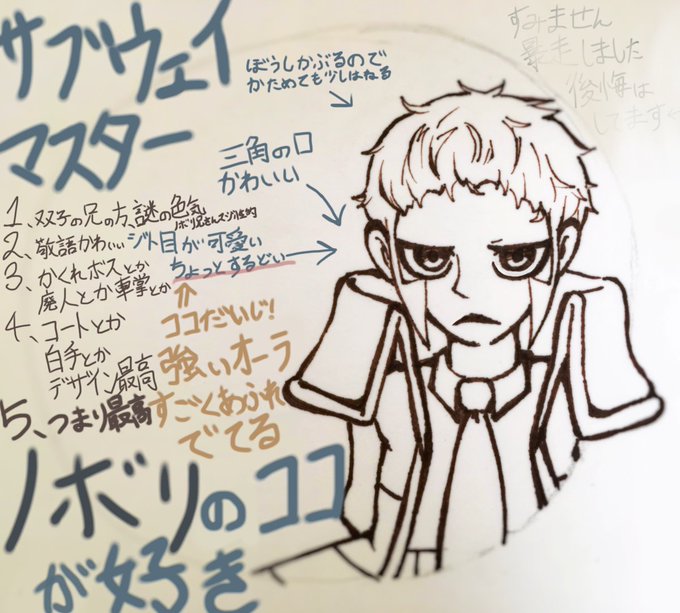 サブウェイ
マスター
ぼうしかぶるので
かためても少しはねる
すみません
暴走しました
後悔は
してます
三角の口
かわいい
1、双子の兄の方、謎の色気
ノボリ兄さんマジ性的
2、敬語かわいい ジト目が可愛い
ちょっとするどい
3、かくれボスとか
廃人とか車掌とか
ココだいじ!
4、コートとか
白手とか
デザイン最高
強いオーラ
すごくあふれ
でてる
5、つまり最高
ノボリのココ
が好き